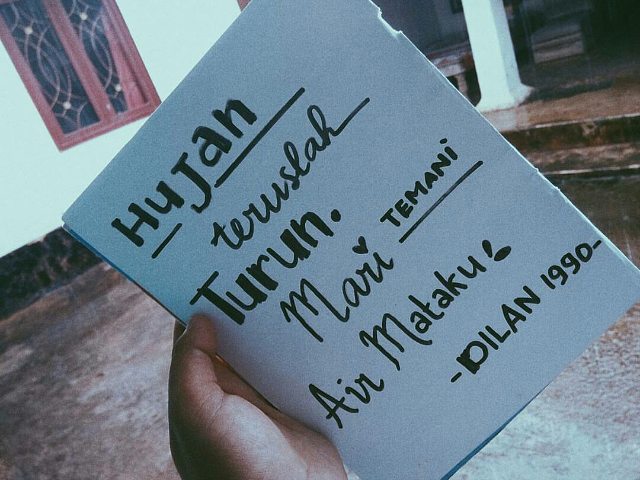 Hujan
teruslah
Turun.
Mari TEMANI
Air Mataku!
-DILAN 1990-